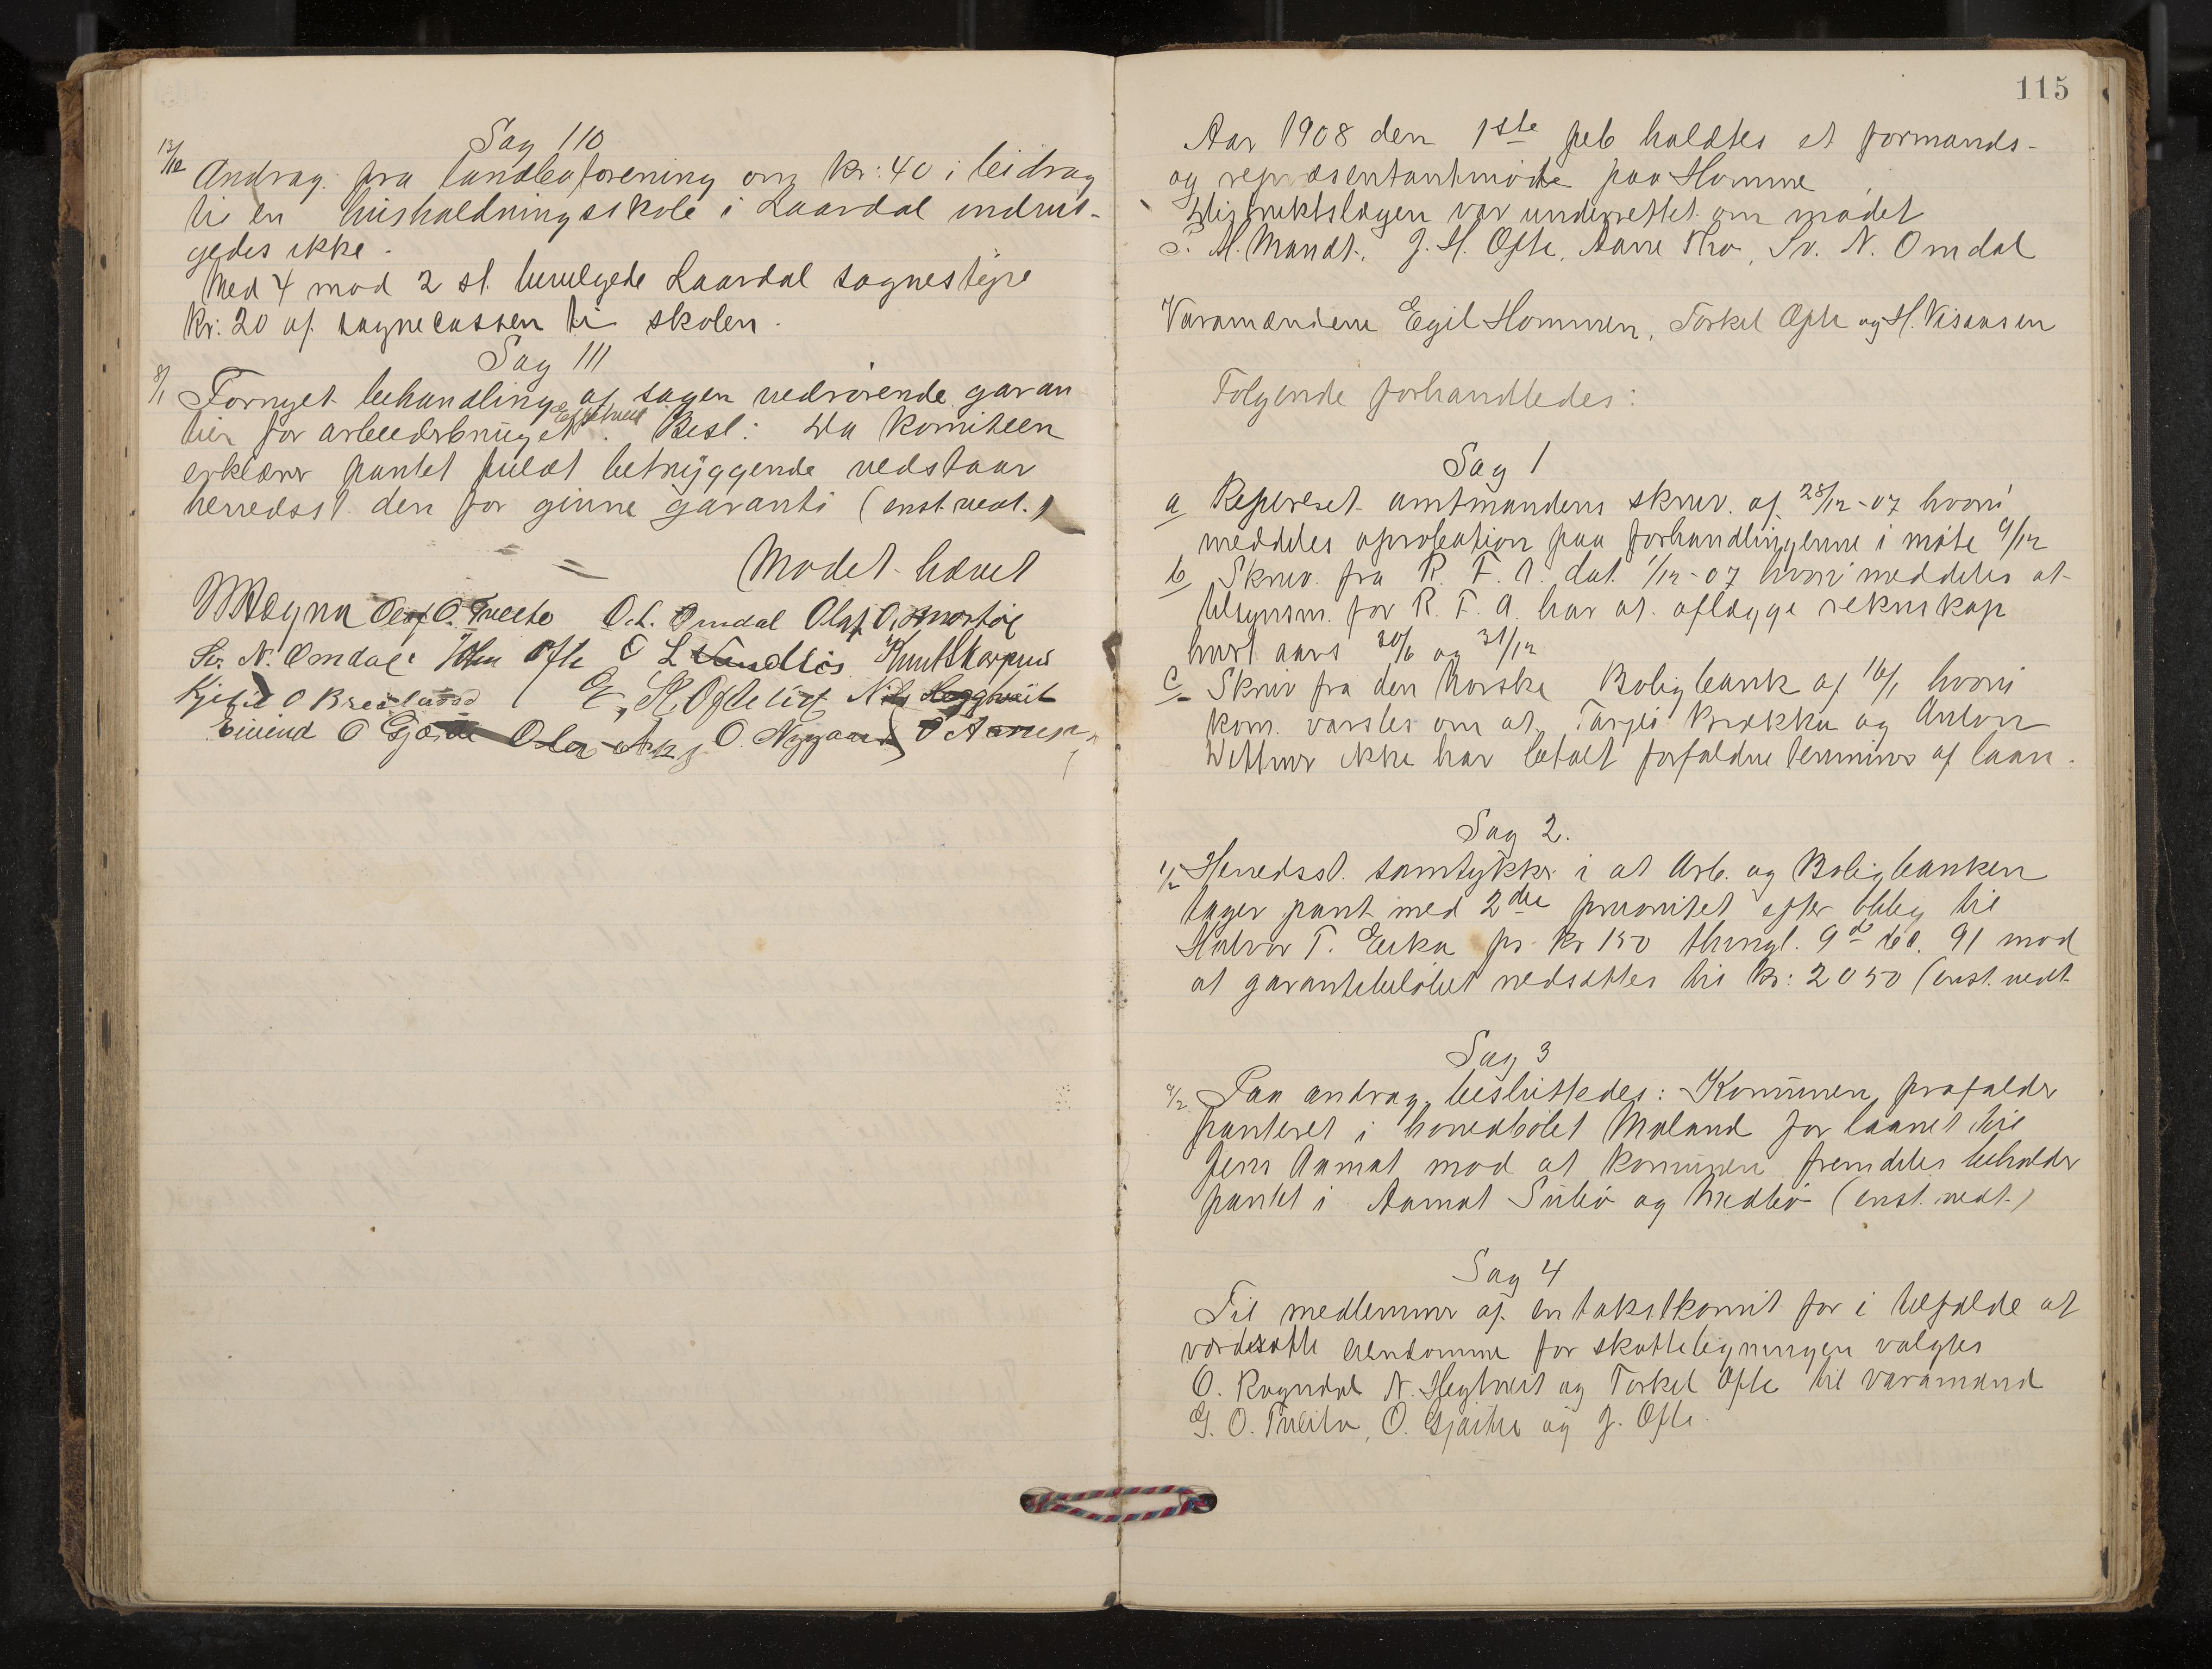 Sag 110
12/12 Andrag. fra landboforening om kr: 40 i bidrag
til en husholdningsskole i Laardal indvil-
gedes ikke.
Med 4 mod 2 st. bevilgede Laardal sognestyre
kr: 20 af sognecassen til skolen.
Sag 111
8/1 Fornyet behandling af sagen vedrørende garan
tien for arbeidsbruget. Besl: Da komiteen
erklærer pantet fuldt betryggende vedstaar
herredsst. den for givne garanti (enst. vedt.)
Mødet hævet
Olaf O. Tveito O. L. Omdal Olaf O.
Sv. N. Omdal John Ofte
Kjetil O Breiland
Eivind O Gjøitil O. Nygaard
115
Aar 1908 den 1ste feb holdtes et formands-
og repræsentantmøte paa Homme
Distriktslægen var underrettet om mødet
S. M. Mandt, J. H. Ofte, Aanne Tho, Sv. N. Omdal
Varamændene Egil Hommen, Torkel Ofte og H.
Følgende forhandledes:
Sag 1
a Refereret amtmandens skriv. af 28/12-07 hvori
meddeles aprobation paa forhandlingerne i møte 9/12
b Skriv. fra R. F. A. dat. 1/12-07 hvori meddeles at
tilsynsm. for R. F. A. har at aflægge rekneskap
hvert aars 30/6 og 31/12
c Skriv fra den Norske Boligbank af 16/1 hvori
kom. varsles om at Tarjei og Anton
ikke har betalt forfaldne terminer af laan.
Sag 2.
1/2 Herredsst. samtykker i at Arb. og Boligbanken
tager pant med 2den prioritet efter oblig til
Halvor T. Eika pr. kr 150 thingl. 9de 91 mod
at garantibeløbet nedsættes til kr: 2050 (enst. vedt.
Sag 3
1/2 Paa andrag besluttedes: Komunen frafalder
panteret i hovedbølet Mæland for laanet til
Jens Aamot mod at komunen fremdeles beholder
pantet i Aamot Sulibø og Medbø (enst. vedt.)
Sag 4
Til medlemmer af en takstkomit for i tilfælde at
værdsætte eiendomme for skatteligningen valgtes
O. Rogndal N. Hegtveit og Torkel Ofte til varamænd
G. O. Tveito, O. Gjøitil og J. Ofte.